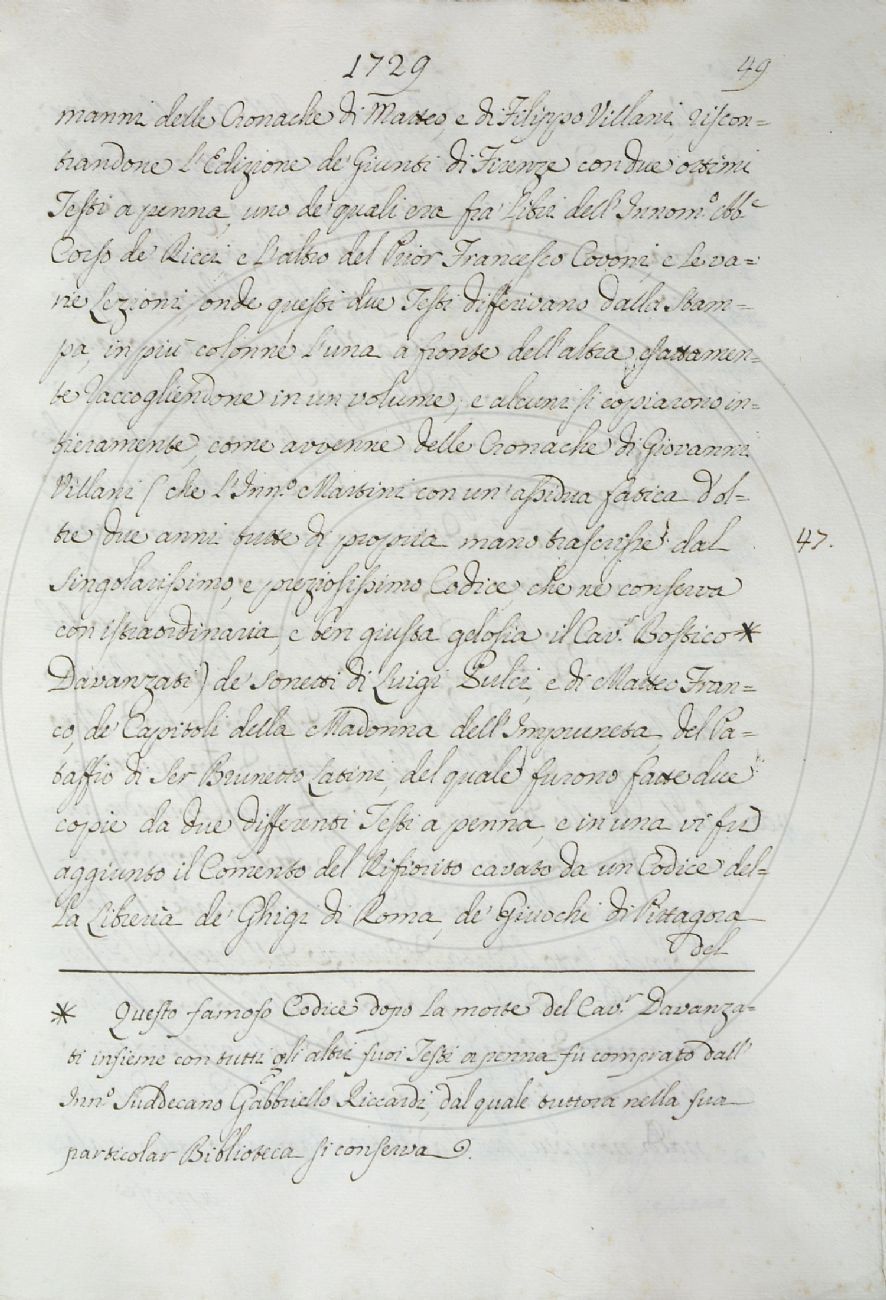 1729
49
manni delle Cronache di Matteo, e di Filippo Villani riscon=
trandone l'Edizione de' Giunti di Firenze con due ottimi
Testi a penna, uno de' quali era fra' Libri dell' Innom.º Ab.e
Corso de' Ricci e l'altro del Prior Francesco Covoni, e le va=
rie Lezioni, onde questi due Testi differivano dalla Stam=
pa, in più colonne l'una a fronte dell'altra esattamen=
te raccogliendone in un volume; e alcuni si copiarono in=
tieramente, come avvenne delle Cronache di Giovanni
Villani (che l'Inn.º Martini con un' assidua fatica d'ol=
tre due anni tutte di propria mano trascrisse dal
47.
singolarissimo, e preziosissimo Codice, che ne conserva
con istraordinaria, e ben giusta gelosia il Cav.r Bostico *
Davanzati) de' Sonetti di Luigi Pulci, e di Matteo Fran=
co, de' Capitoli della Madonna dell' Impruneta, del Pa=
taffio di Ser Brunetto Latini, del quale furono fatte due
copie da due differenti Testi a penna, e in una vi fu
aggiunto il Comento del Rifiorito cavato da un Codice del=
la Libreria de' Ghigi di Roma, de' Giuochi di Pittagora
del
* Questo famoso Codice dopo la morte del Cav.r Davanza=
ti insieme con tutti gli altri suoi Testi a penna fu comprato dall'
Inn.º Suddecano Gabbriello Riccardi, dal quale tuttora nella sua
particolar Biblioteca si conserva.